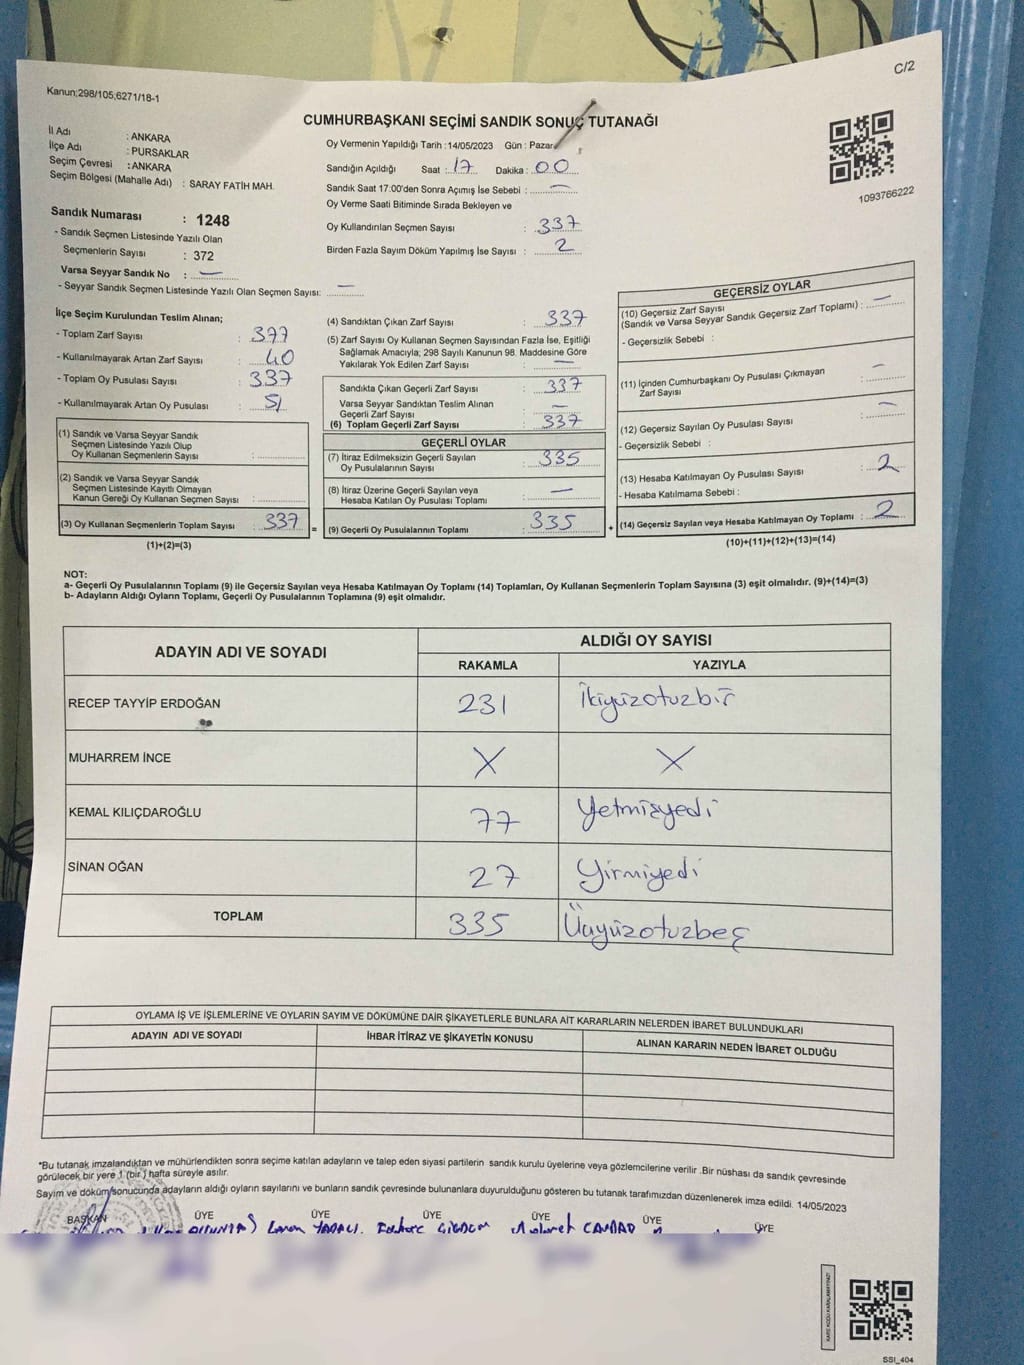 C/2
Kanun;298/105;6271/18-1
CUMHURBAŞKANI SEÇİMİ SANDIK SONUÇ TUTANAĞI
İl Adı : ANKARA
İlçe Adı : PURSAKLAR
Seçim Çevresi : ANKARA
Seçim Bölgesi (Mahalle Adı) : SARAY FATİH MAH.
Oy Vermenin Yapıldığı Tarih : 14/05/2023 Gün : Pazar
Sandığın Açıldığı Saat : 17 Dakika : 00
Sandık Saat 17:00'den Sonra Açımış İse Sebebi : —
Oy Verme Saati Bitiminde Sırada Bekleyen ve
Oy Kullandırılan Seçmen Sayısı : 337
Birden Fazla Sayım Döküm Yapılmış İse Sayısı : 2
1093766222
Sandık Numarası : 1248
- Sandık Seçmen Listesinde Yazılı Olan
Seçmenlerin Sayısı : 372
Varsa Seyyar Sandık No : —
- Seyyar Sandık Seçmen Listesinde Yazılı Olan Seçmen Sayısı: —
İlçe Seçim Kurulundan Teslim Alınan;
- Toplam Zarf Sayısı : 377
- Kullanılmayarak Artan Zarf Sayısı : 40
- Toplam Oy Pusulası Sayısı : 337
- Kullanılmayarak Artan Oy Pusulası : 51
(1) Sandık ve Varsa Seyyar Sandık
Seçmen Listesinde Yazılı Olup
Oy Kullanan Seçmenlerin Sayısı :
(2) Sandık ve Varsa Seyyar Sandık
Seçmen Listesinde Kayıtlı Olmayan
Kanun Gereği Oy Kullanan Seçmen Sayısı :
(3) Oy Kullanan Seçmenlerin Toplam Sayısı : 337 =
(1)+(2)=(3)
(4) Sandıktan Çıkan Zarf Sayısı : 337
(5) Zarf Sayısı Oy Kullanan Seçmen Sayısından Fazla İse, Eşitliği
Sağlamak Amacıyla; 298 Sayılı Kanunun 98. Maddesine Göre
Yakılarak Yok Edilen Zarf Sayısı : —
Sandıkta Çıkan Geçerli Zarf Sayısı : 337
Varsa Seyyar Sandıktan Teslim Alınan
Geçerli Zarf Sayısı : —
(6) Toplam Geçerli Zarf Sayısı : 337
GEÇERLİ OYLAR
(7) İtiraz Edilmeksizin Geçerli Sayılan
Oy Pusulalarının Sayısı : 335
(8) İtiraz Üzerine Geçerli Sayılan veya
Hesaba Katılan Oy Pusulası Toplamı : —
(9) Geçerli Oy Pusulalarının Toplamı : 335 +
GEÇERSİZ OYLAR
(10) Geçersiz Zarf Sayısı
(Sandık ve Varsa Seyyar Sandık Geçersiz Zarf Toplamı) : —
- Geçersizlik Sebebi :
(11) İçinden Cumhurbaşkanı Oy Pusulası Çıkmayan
Zarf Sayısı : —
(12) Geçersiz Sayılan Oy Pusulası Sayısı : —
- Geçersizlik Sebebi :
(13) Hesaba Katılmayan Oy Pusulası Sayısı : 2
- Hesaba Katılmama Sebebi :
(14) Geçersiz Sayılan veya Hesaba Katılmayan Oy Toplamı : 2
(10)+(11)+(12)+(13)=(14)
NOT:
a- Geçerli Oy Pusulalarının Toplamı (9) ile Geçersiz Sayılan veya Hesaba Katılmayan Oy Toplamı (14) Toplamları, Oy Kullanan Seçmenlerin Toplam Sayısına (3) eşit olmalıdır. (9)+(14)=(3)
b- Adayların Aldığı Oyların Toplamı, Geçerli Oy Pusulalarının Toplamına (9) eşit olmalıdır.
ADAYIN ADI VE SOYADI ALDIĞI OY SAYISI
RAKAMLA YAZIYLA
RECEP TAYYİP ERDOĞAN 231 İkiyüzotuzbir
MUHARREM İNCE X X
KEMAL KILIÇDAROĞLU 77 Yetmişyedi
SİNAN OĞAN 27 Yirmiyedi
TOPLAM 335 Üçyüzotuzbeş
OYLAMA İŞ VE İŞLEMLERİNE VE OYLARIN SAYIM VE DÖKÜMÜNE DAİR ŞİKAYETLERLE BUNLARA AİT KARARLARIN NELERDEN İBARET BULUNDUKLARI
ADAYIN ADI VE SOYADI İHBAR İTİRAZ VE ŞİKAYETİN KONUSU ALINAN KARARIN NEDEN İBARET OLDUĞU
*Bu tutanak imzalandıktan ve mühürlendikten sonra seçime katılan adayların ve talep eden siyasi partilerin sandık kurulu üyelerine veya gözlemcilerine verilir .Bir nüshası da sandık çevresinde
görülecek bir yere 1 (bir ) hafta süreyle asılır.
Sayım ve döküm sonucunda adayların aldığı oyların sayılarını ve bunların sandık çevresinde bulunanlara duyurulduğunu gösteren bu tutanak tarafımızdan düzenlenerek imza edildi. 14/05/2023
BAŞKAN ÜYE ÜYE ÜYE ÜYE ÜYE ÜYE
KARE KODU KARALAMAYINIZ!
SSI_404